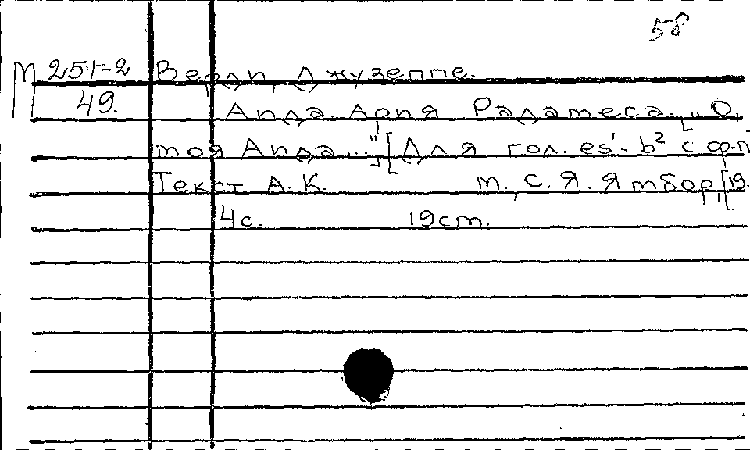 58
М 251-2 Верди, Джузеппе.
49. Аида. Ария Радамеса. „О,
моя Аида..."] [Для гол. es'-b² с ф.п
Текст А.К. м., С.Я. Ямбор, [19.
4с. 19см.